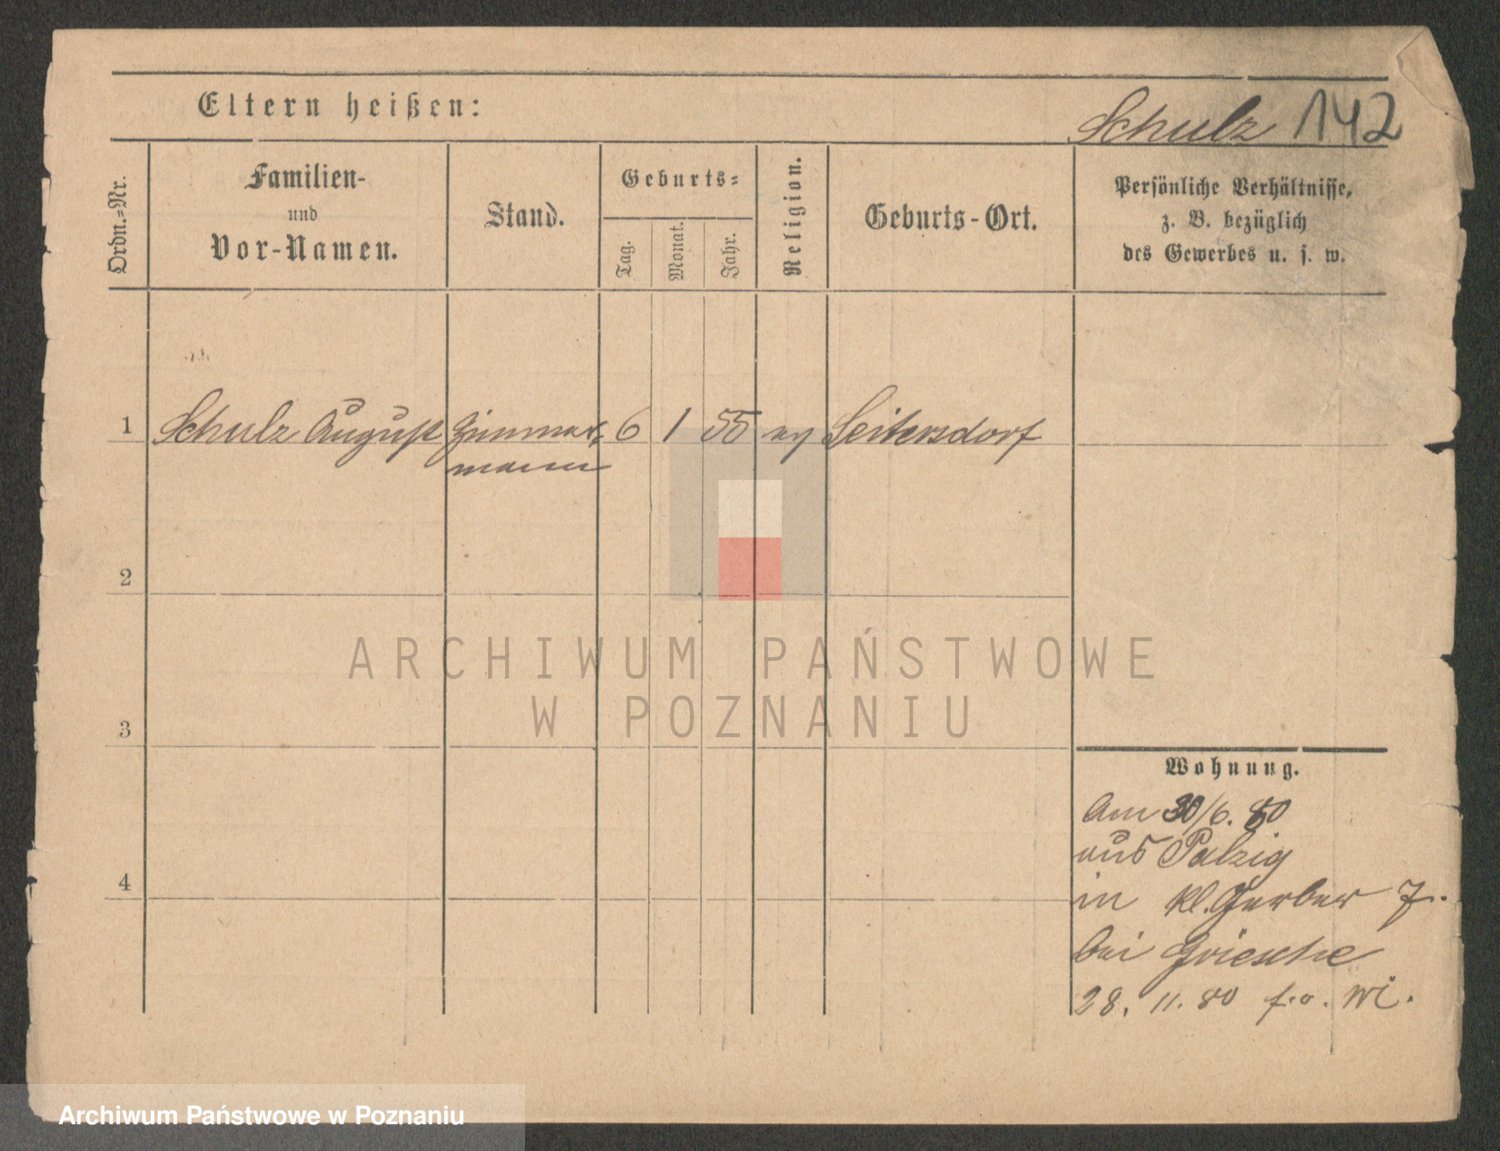 Eltern heißen:
Schulz 142
Ordn.=Nr.
Familien-
und
Vor-Namen.
Stand.
Geburts=
Tag.
Monat.
Jahr.
Religion.
Geburts-Ort.
Persönliche Verhältnisse,
z. B. bezüglich
des Gewerbes u. s. w.
1 Schulz August Zimmer= 6 1 55 ev Seitersdorf
mann
2
3
4
ARCHIWUM PAŃSTWOWE
W POZNANIU
Wohnung.
Am 30/6. 80
aus Palzig
in Kl. Gerber 7.
bei Griesche
28. 11. 80 f. o. Wi.
Archiwum Państwowe w Poznaniu